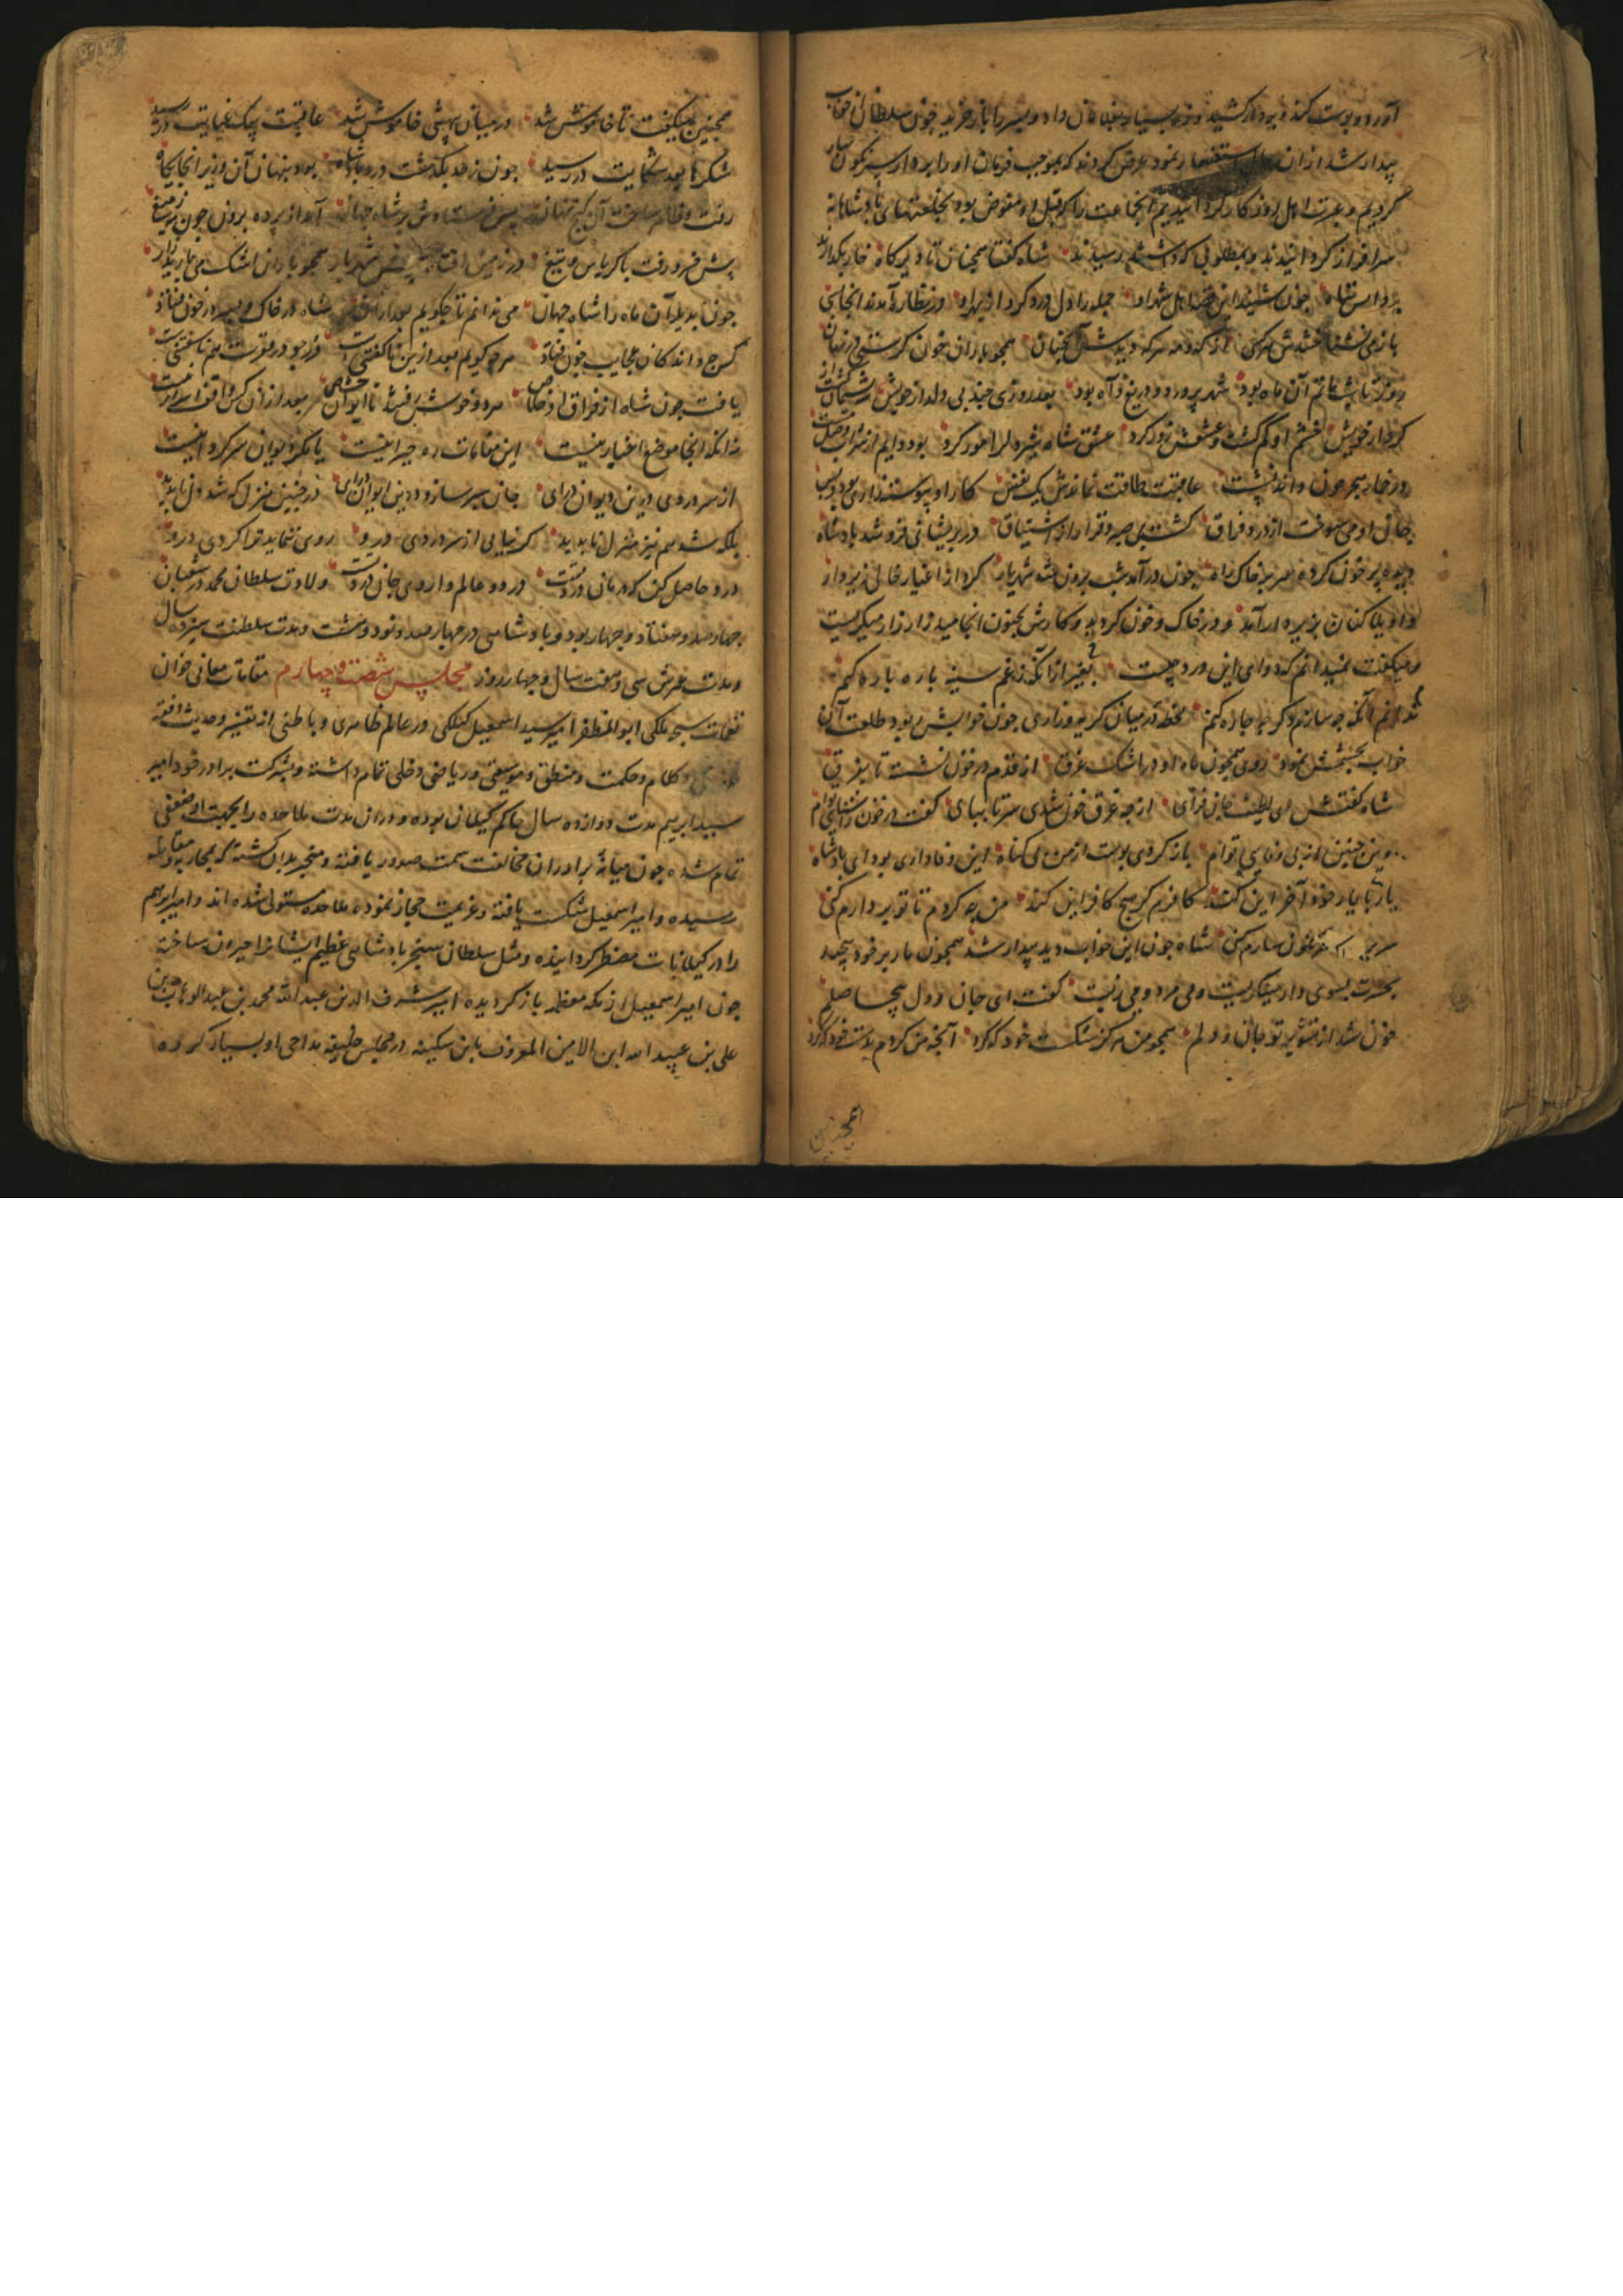 آورد و پوست کند و بردار کشید و زر بسیار بغلامان داد و پسر را باز خرید چون سلطان از خواب
بیدار شد از ان حال استفسار نمود عرض کردند که بموجب فرمان او را بر دار سرنکون سار
کردیم و عبرت اهل روزکار کردانیدیم انجماعت را که قتل او مفوض بود بخلعتهای پادشاهانه
سرافراز کردانیدند و بمطلوبی که داشتند رسیدند شاه کفتا همچنان تا دیر کاه خار بکذارید
بر دار تباه چون شنیدند این قصه اهل شهر او جمله را دل درد کرد از بهر او در نظاره آمدند انجا بسی
باز می نشناختندش هر کسی از که و مه هر که دیدش آنچنان همچو باران خون کرستی در نهان
روز تا شب ماتم آن ماه بود شهر پر درد و دریغ و آه بود بعد روزی چند بی دلدار خویش شه پشیمان کشت از
کردار خویش خشم او کم کشت و عشقش زور کرد عشق شاه شیردل را مور کرد بود دایم از شراب وصل مست
در خمار هجر چون داند نشست عاقبت طاقت نماندش یک نفس کار او پیوسته زاری بود و بس
جان او می سوخت از درد فراق کشت بی صبر و قرار از اشتیاق در پریشانی فرو شد پادشاه
دیده پر خون کرده سر بر خاک راه چون در آمد شب برون شد شهریار کرد از اغیار خالی زیر دار
واویلا کنان بزیر دار آمد و در خاک و خون کردید و کارش بجنون انجامید زار زار میکریست
و میکفت نمیدانم که دوای این درد چیست بغیر از آنکه ز غم سینه پاره پاره کنم
ندانم آنکه چه سازم دکر چه چاره کنم لحظه در میان کریه و زاری چون خوابش ربود طلعت آن
خواب بچشمش نمود روی همچون ماه او در اشک غرق از قدم در خون نشسته تا بفرق
شاه کفتش ای لطیف جان فزای از چه غرق خون شدی سر تا بپای کفت در خون ز آشنایی توام
وین چنین از بی وفایی توام باز کردی پوست از من بی کناه این وفاداری بود ای پادشاه
یار با یار خود آخر این کند کافرم کر هیچ کافر این کند من چه کردم تا تو بر دارم کنی
سر بری نکونسارم کنی شاه چون این خواب دید بیدار شد همچون مار بر خود پیچید
بحسرت بسوی دار مینکریست و می مرد و می زیست کفت ای جان و دل بیحاصلم
خون شد از تشویر تو جان و دلم همچو من هرکز شکست خود که کرد آنچه من کردم بدست خود که کرد
همچنین
همچنین میکفت تا خاموش شد در میان بیهشی خاموش شد عاقبت پیک عنایت در رسید
شکرها بعد شکایت در رسید چون ز حد بکذشت درد پادشاه بود پنهان آن وزیر انجایکاه
رفت و پس فرستادش بر شاه جهان آمد از پرده برون چون مه ز میغ
پیش خسرو رفت با کرباس و تیغ در زمین افتاد پیش شهریار همچو باران اشک می بارید زار
چون بدید آن ماه را شاه جهان می ندانم تا چکویم شاه در خاک و پسر در خون فتاد
کس چه داند کان عجایب چون فتاد هر چه کویم بعد ازین ناکفتنیست در چو در قعرست هم ناسفتنیست
یافت چون شاه از فراق او خلاص هر دو خوش رفتند تا ایوان خاص بعد از آن کس واقف اسرار نیست
زانکه انجا موضع اغیار نیست
از سر دردی درین دیوان درای جان سپر ساز و درین ایوان درای در چنین منزل که شد دل ناپدید
بلکه شد هم نیز منزل ناپدید کر نیابی از سر دردی درو روی ننماید ترا کردی درو
درد حاصل کن که درمان درد تست در دو عالم داروی جان درد تست ولادت سلطان محمد در شعبان
چهارصد و هفتاد و چهار بود و پادشاهی در چهارصد و نود و هشت و مدت سلطنت سیزده سال
و مدت عمرش سی و هفت سال و چهار روز مجلس شصت و چهارم مقامات معانی خوان
نغمات سبحه ملکی ابو المظفر امیر سید اسمعیل کیلکی در عالم ظاهری و باطنی از تفسیر و حدیث و فقه
و کلام و حکمت و منطق و موسیقی و ریاضی دخلی تمام داشته و بشرکت برادر خود امیر
سید ابرهیم مدت دوازده سال حاکم کیلان بوده و در ان مدت ملاحده را بجهت او ضعفی
تمام شده چون میانهٔ برادران مخالفت سمت صدور یافته و منجر بدان کشته که بمحاربه و مقابله
رسیده و امیر اسمعیل شکست یافته و عزیمت حجاز نموده ملاحده مستولی شده اند و امیر ابرهیم
را در کیلانات مضطر کردانیده و مثل سلطان سنجر پادشاهی عظیم ایشانرا حیران ساخته
چون امیر اسمعیل از مکه معظمه باز کردیده امیر شرف الدین عبد الله محمد بن عبد الوهاب بن
علی بن عبید الله ابن الامین المعروف بابن سکینه در مجلس خلیفه مداحی او بسیار کرده